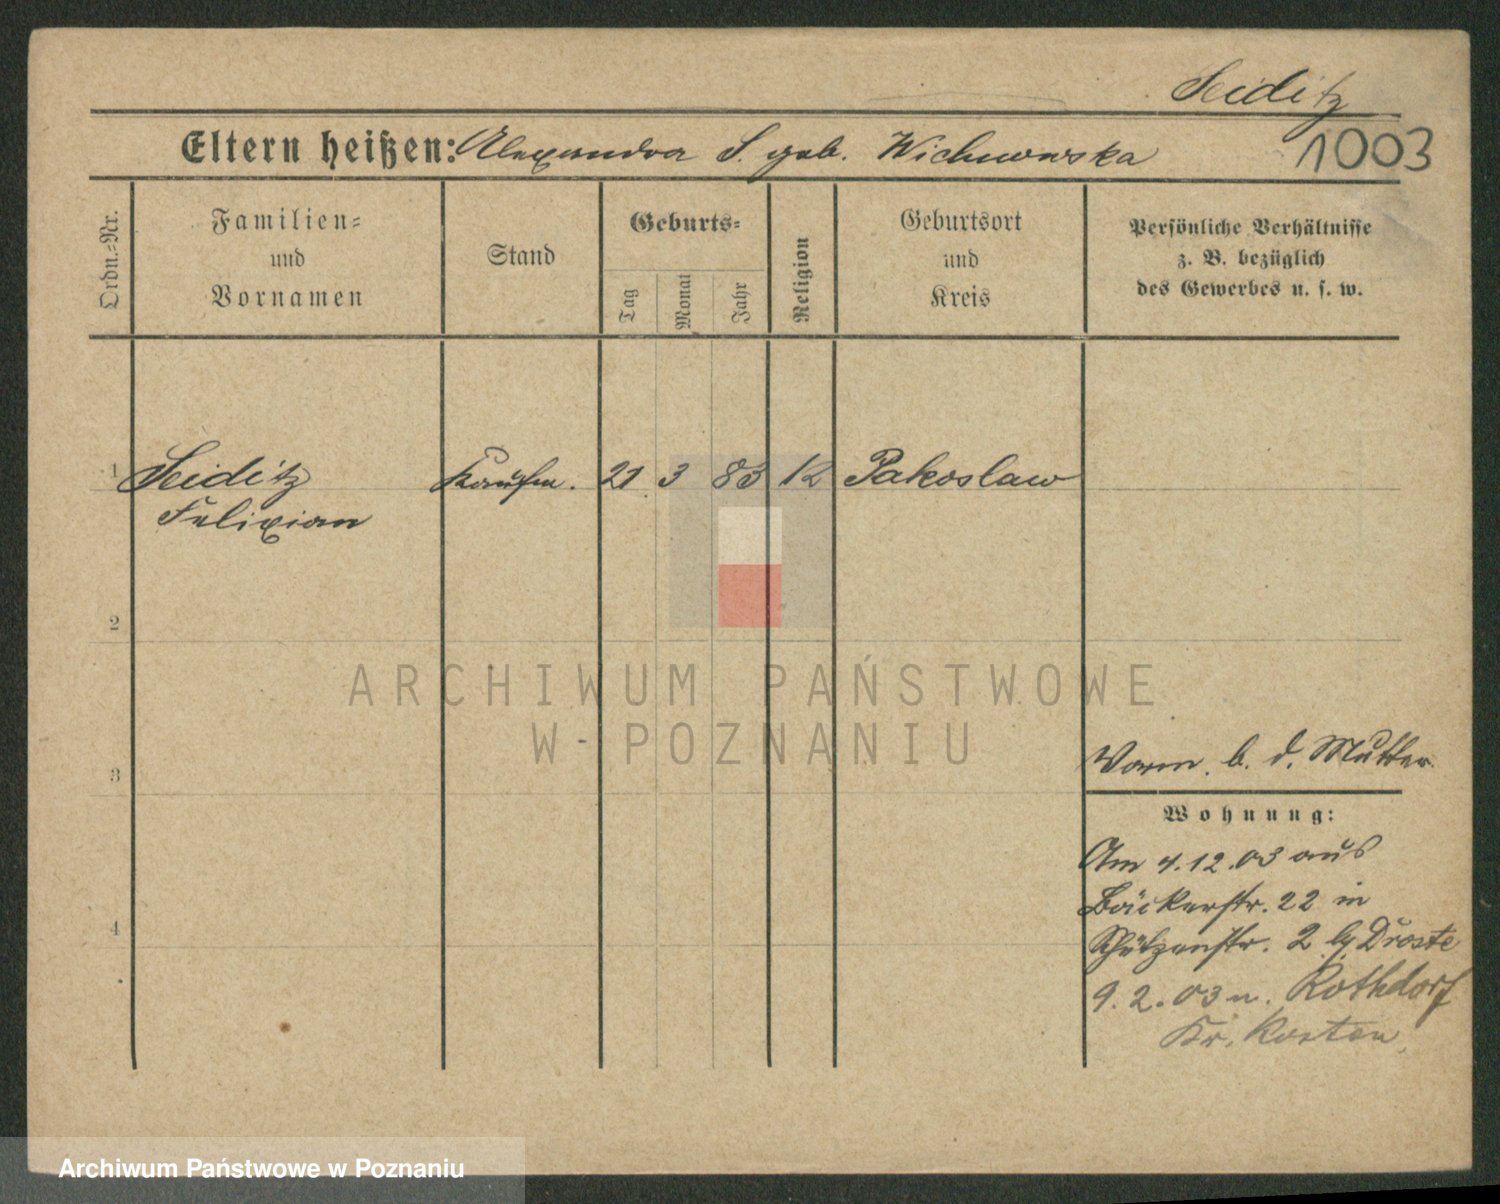 Seiditz
Eltern heißen: Alexandra S. geb. Wichnowska
1003
Ordn.-Nr.
Familien-
und
Vornamen
Stand
Geburts-
Tag
Monat
Jahr
Religion
Geburtsort
und
Kreis
Persönliche Verhältnisse
z. B. bezüglich
des Gewerbes u. s. w.
1 Seiditz Kaufm. 21 3 83 K Pakoslaw
Felixian
2
ARCHIWUM PAŃSTWOWE
W POZNANIU
3
Vorm. b. d. Mutter
Wohnung:
Am 4.12.03 aus
Bäckerstr. 22 in
4
Schützenstr. 2 Droste
9.2.03 n. Rothdorf
Kr. Kosten
Archiwum Państwowe w Poznaniu